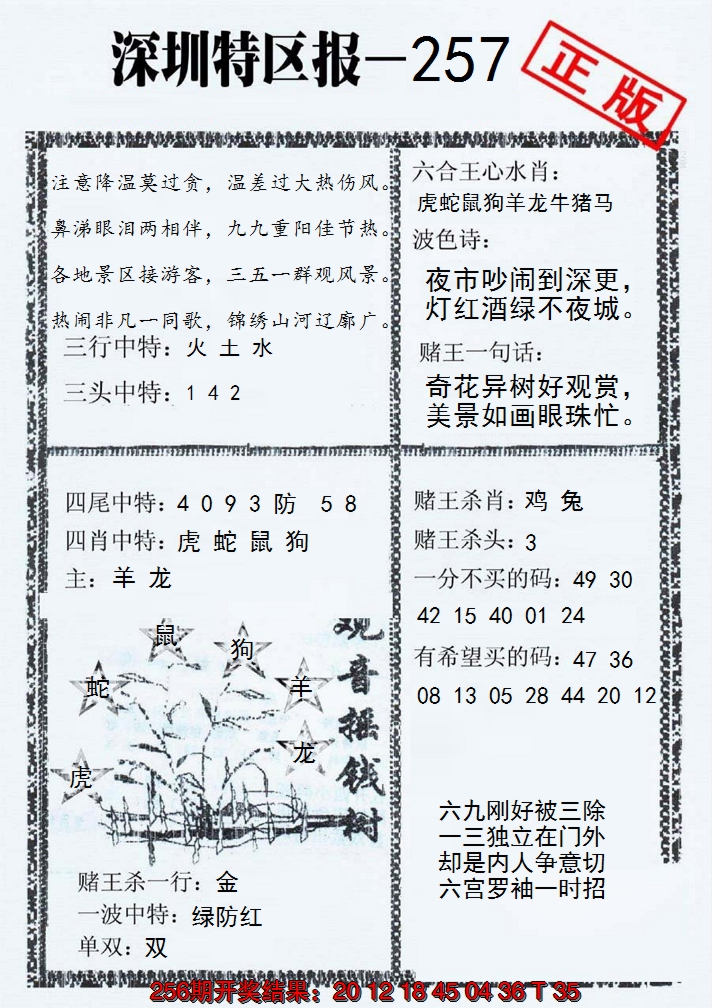 深圳特区报—257
正版
注意降温莫过贪，温差过大热伤风。
鼻涕眼泪两相伴，九九重阳佳节热。
各地景区接游客，三五一群观风景。
热闹非凡一同歌，锦绣山河辽廓广。
三行中特：火 土 水
三头中特：1 4 2
六合王心水肖：
虎蛇鼠狗羊龙牛猪马
波色诗：
夜市吵闹到深更，
灯红酒绿不夜城。
赌王一句话：
奇花异树好观赏，
美景如画眼珠忙。
四尾中特：4 0 9 3 防 5 8
四肖中特：虎 蛇 鼠 狗
主：羊 龙
鼠
狗
蛇
羊
龙
虎
观音摇钱树
赌王杀一行：金
一波中特：绿防红
单双：双
赌王杀肖：鸡 兔
赌王杀头：3
一分不买的码：49 30
42 15 40 01 24
有希望买的码：47 36
08 13 05 28 44 20 12
六九刚好被三除
一三独立在门外
却是内人争意切
六宫罗袖一时招
256期开奖结果：20 12 18 45 04 36 T 35